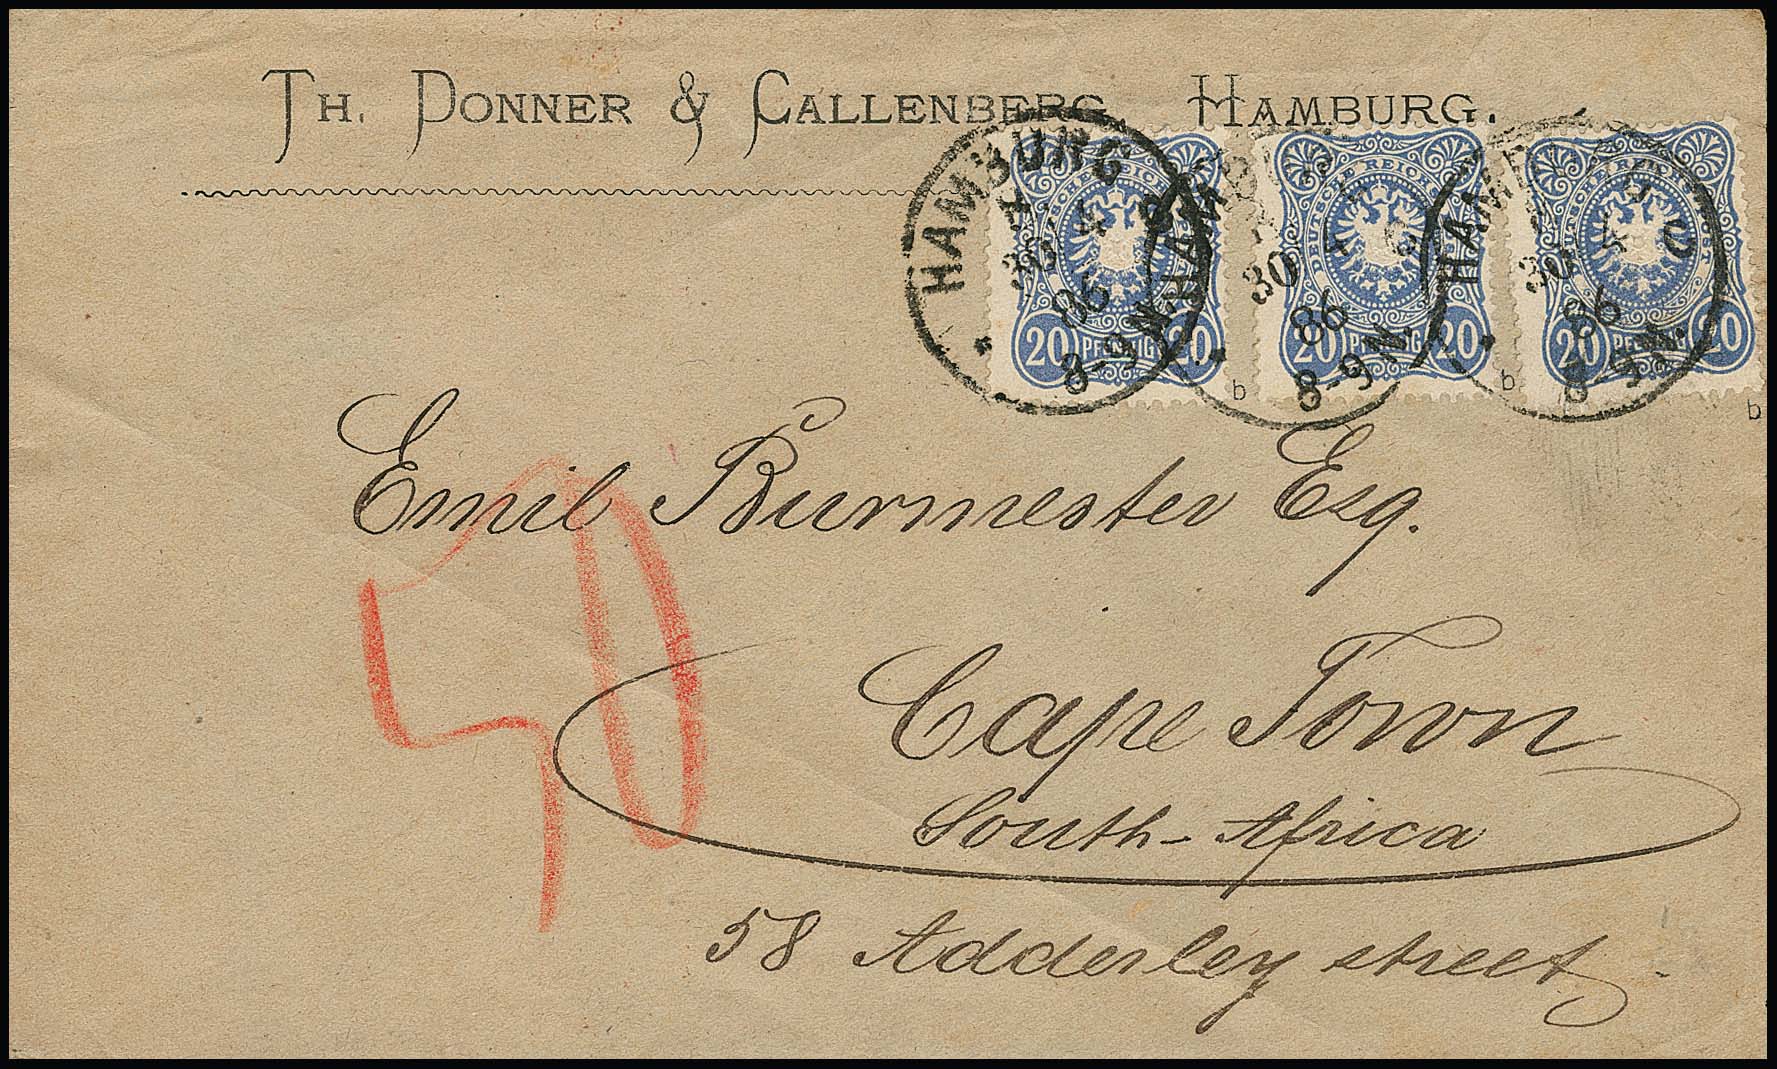 TH. DONNER & CALLENBERG, HAMBURG.
HAMBURG
30 4
86
8-9 N.
DEUTSCHE REICHSPOST
20 PFENNIG 20
b
HAMBURG
30 4
86
8-9 N.
DEUTSCHE REICHSPOST
20 PFENNIG 20
b
HAMBURG
30 4
86
8-9 N.
DEUTSCHE REICHSPOST
20 PFENNIG 20
b
Emil Burmester Esq.
Cape Town
South-Africa
58 Adderley street